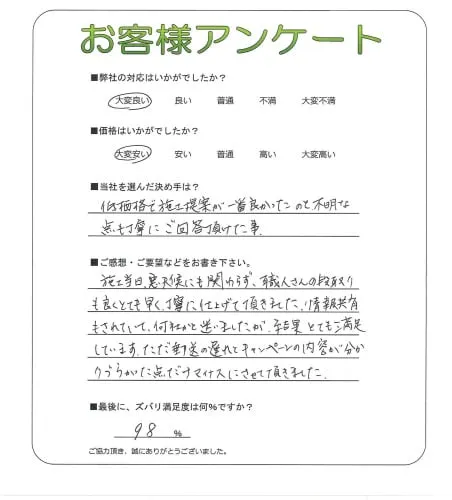 お客様アンケート
■弊社の対応はいかがでしたか?
大変良い 良い 普通 不満 大変不満
■価格はいかがでしたか?
大変安い 安い 普通 高い 大変高い
■当社を選んだ決め手は?
低価格で施工提案が一番良かったのと不明な
点も丁寧にご回答頂けた事.
■ご感想・ご要望などをお書き下さい。
施工当日、悪天候にも関わらず、職人さんの段取り
も良くとても早く、丁寧に仕上げて頂きました。情報共有
もされていて、何社かと迷いましたが、結果とてもご満足
しています。ただ郵送の遅れとキャンペーンの内容が分か
りづらかった点だけマイナスにさせて頂きました.
■最後に、ズバリ満足度は何%ですか?
98 %
ご協力頂き、誠にありがとうございました。